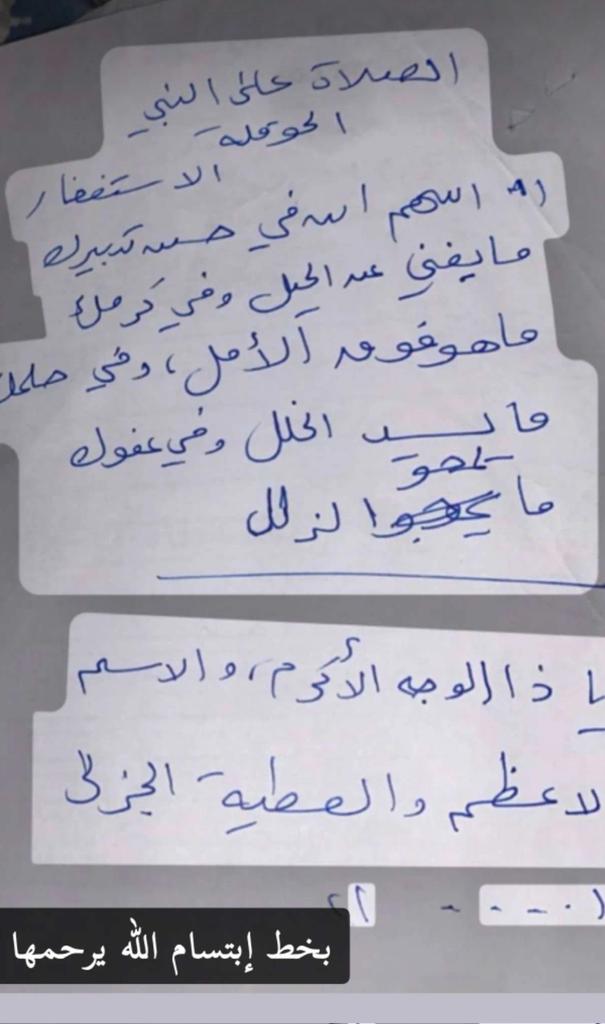 الصلاة على النبي
الحوقلة
الاستغفار
(١) اللهم ان في حسن تدبيرك
ما يغني عن الحيل وفي كرمك
ما هو فوق الأمل، وفي حلمك
ما يسد الخلل وفي عفوك
يمحو
ما الزلل
يا ذا الوجه الأكرم، والاسم
لاعظم والعطية الجزلى
بخط إبتسام الله يرحمها